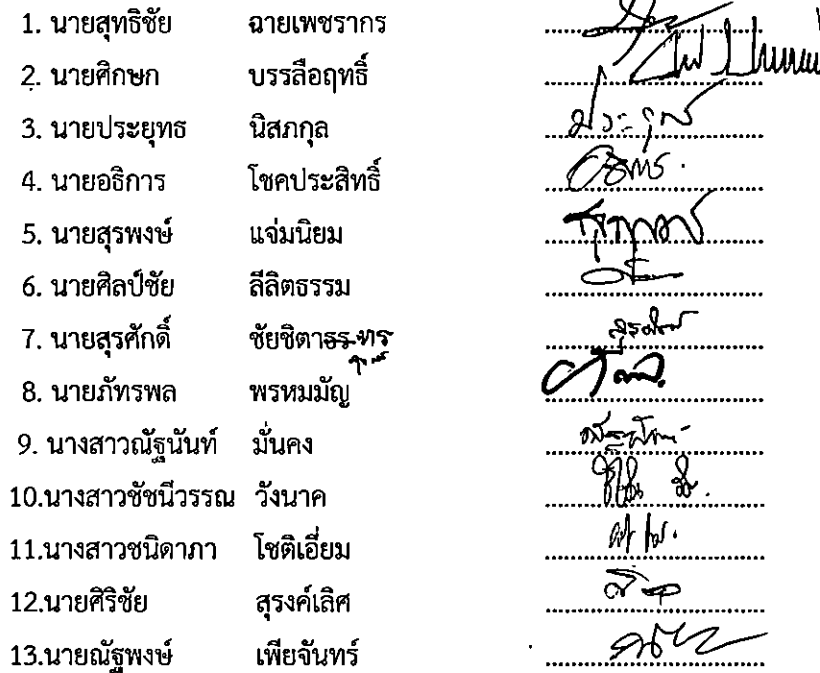 1. นายสุทธิชัย ฉายเพชรากร
2. นายศิกษก บรรลือฤทธิ์
3. นายประยุทธ นิสภกุล ประยุทธ
4. นายอธิการ โชคประสิทธิ์ อธิการ
5. นายสุรพงษ์ แจ่มนิยม
6. นายศิลป์ชัย ลีลิตธรรม
7. นายสุรศักดิ์ ชัยชิตาธร ทร สุรศักดิ์
8. นายภัทรพล พรหมมัญ
9. นางสาวณัฐนันท์ มั่นคง
10.นางสาวชัชนีวรรณ วังนาค
11.นางสาวชนิดาภา โชติเอี่ยม
12.นายศิริชัย สุรงค์เลิศ
13.นายณัฐพงษ์ เพียจันทร์